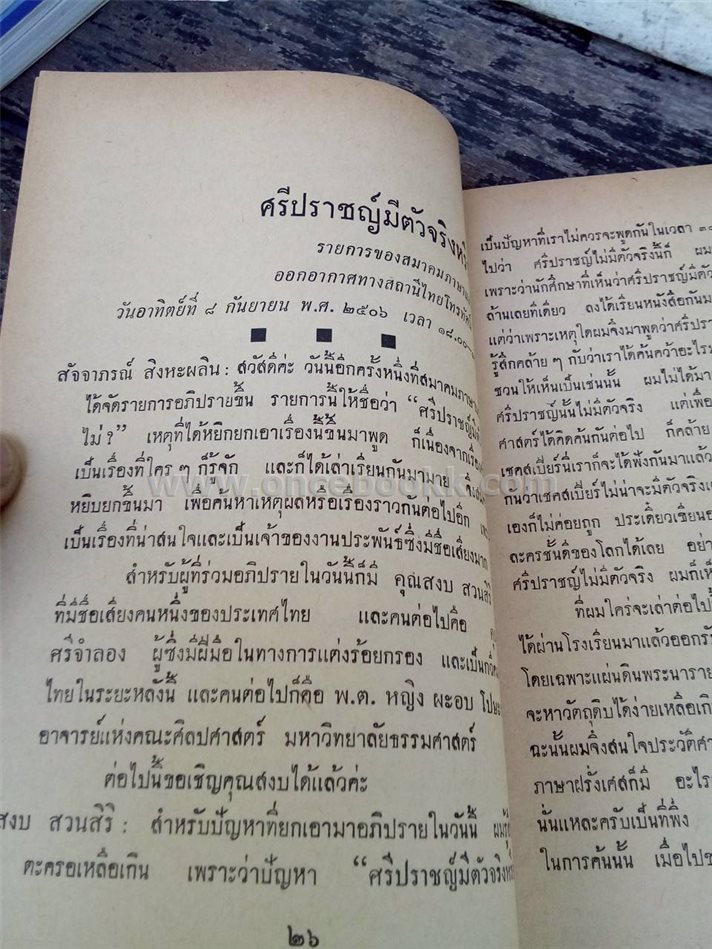 ศรีปราชญ์มีตัวจริงหรือ
รายการของสมาคมภาษาและ
ออกอากาศทางสถานีไทยโทรทัศน์
วันอาทิตย์ที่ ๘ กันยายน พ.ศ. ๒๕๐๖ เวลา ๑๘.๐๐
สัจจาภรณ์ สิงหะผลิน : สวัสดีค่ะ วันนี้อีกครั้งหนึ่งที่สมาคมภาษา
ได้จัดรายการอภิปรายขึ้น รายการนี้ให้ชื่อว่า “ศรีปราชญ์มี
ไม่ ?” เหตุที่ได้หยิกยกเอาเรื่องนี้ขึ้นมาพูด ก็เนื่องจากเรื่อง
เป็นเรื่องที่ใคร ๆ ก็รู้จัก และก็ได้เล่าเรียนกันมามาย
หยิบยกขึ้นมา เพื่อค้นหาเหตุผลหรือเรื่องราวกันต่อไปอีก
เป็นเรื่องที่น่าสนใจและเป็นเจ้าของงานประพันธ์ซึ่งมีชื่อเสียงมาก
สำหรับผู้ที่ร่วมอภิปรายในวันนี้ก็มี คุณสงบ สวนสิริ
ที่มีชื่อเสียงคนหนึ่งของประเทศไทย และคนต่อไปคือ
ศรีจำลอง ผู้ซึ่งมีฝีมือในทางการแต่งร้อยกรอง และเป็นกวี
ไทยในระยะหลังนี้ และคนต่อไปก็คือ พ.ต. หญิง ผะอบ โปษะ
อาจารย์แห่งคณะศิลปศาสตร์ มหาวิทยาลัยธรรมศาสตร์
ต่อไปนี้ขอเชิญคุณสงบได้แล้วค่ะ
สงบ สวนสิริ : สำหรับปัญหาที่ยกเอามาอภิปรายในวันนี้ ผมรู้
ตะครอเหลือเกิน เพราะว่าปัญหา “ศรีปราชญ์มีตัวจริง
๒๖
เป็นปัญหาที่เราไม่ควรจะพูดกันในเวลา
ไปว่า ศรีปราชญ์ไม่มีตัวจริงนี้ก็ ผม
เพราะว่านักศึกษาที่เห็นว่าศรีปราชญ์มีตัว
ล้านเลยทีเดียว ลงได้เรียนหนังสือกันมา
แต่ว่าเพราะเหตุใดผมจึงมาพูดว่าศรีปรา
รู้สึกคล้าย ๆ กับว่าเราได้ค้นคว้าอะไร
ชวนให้เห็นเป็นเช่นนั้น ผมไม่ได้มา
ศรีปราชญ์นั้นไม่มีตัวจริง แต่เพื่อ
ศาสตร์ได้คิดค้นกันต่อไป ก็คล้าย
เชคสเปียร์นี่เราก็จะได้ฟังกันมาแล้ว
กันว่าเชคสเปียร์ไม่น่าจะมีตัวจริง
เองก็ไม่ค่อยถูก ประเดี๋ยวเขียน
ละครชั้นดีของโลกได้เลย อย่า
ศรีปราชญ์ไม่มีตัวจริง ผมก็เห็
ที่ผมใคร่จะเล่าต่อไป
ได้ผ่านโรงเรียนมาแล้วออกรั
โดยเฉพาะแผ่นดินพระนาราย
จะหาวัตถุดิบได้ง่ายเหลือเกิ
ฉะนั้นผมจึงสนใจประวัติศา
ภาษาฝรั่งเศสก็มี อะไร
นั่นแหละครับเป็นที่พึ่ง
ในการค้นนั้น เมื่อไป
www.oncebookk.com